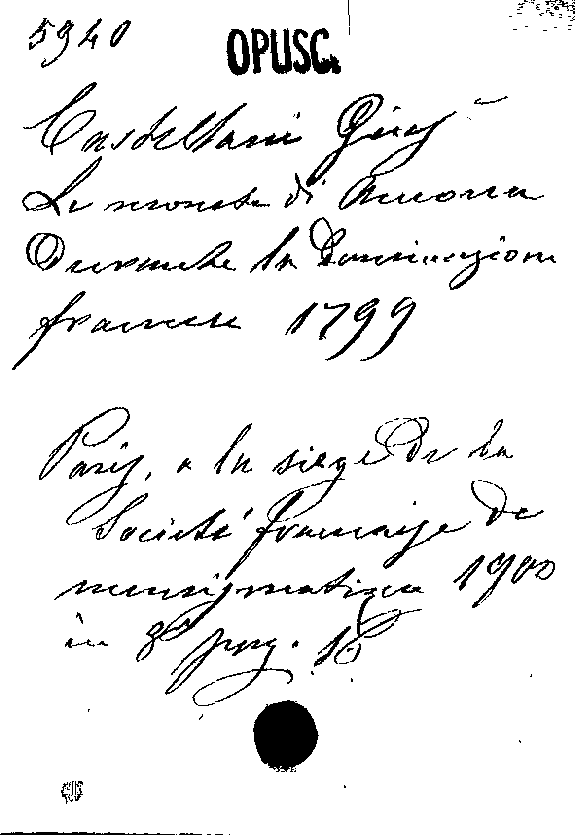 5940
OPUSC.
Castellani Gius
Le monete di Ancona
Durante la dominazione
francese 1799
Paris, a la siege de la
Societé française de
numismatique 1900
in 8° pag. 16